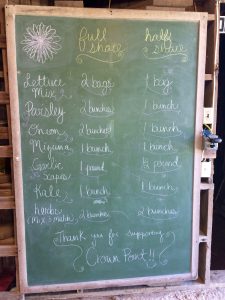 full share
half share
Lettuce Mix 2 bags 1 bag
Parsley 2 bunches 1 bunch
Onion 2 bunches 1 bunch
Mizuna 1 bunch 1 bunch
Garlic Scapes 1 pound ½ pound
Kale 1 bunch 1 bunch
herbs (mix & match) 2 bunches 2 bunches
Thank you for supporting
Crown Point!!